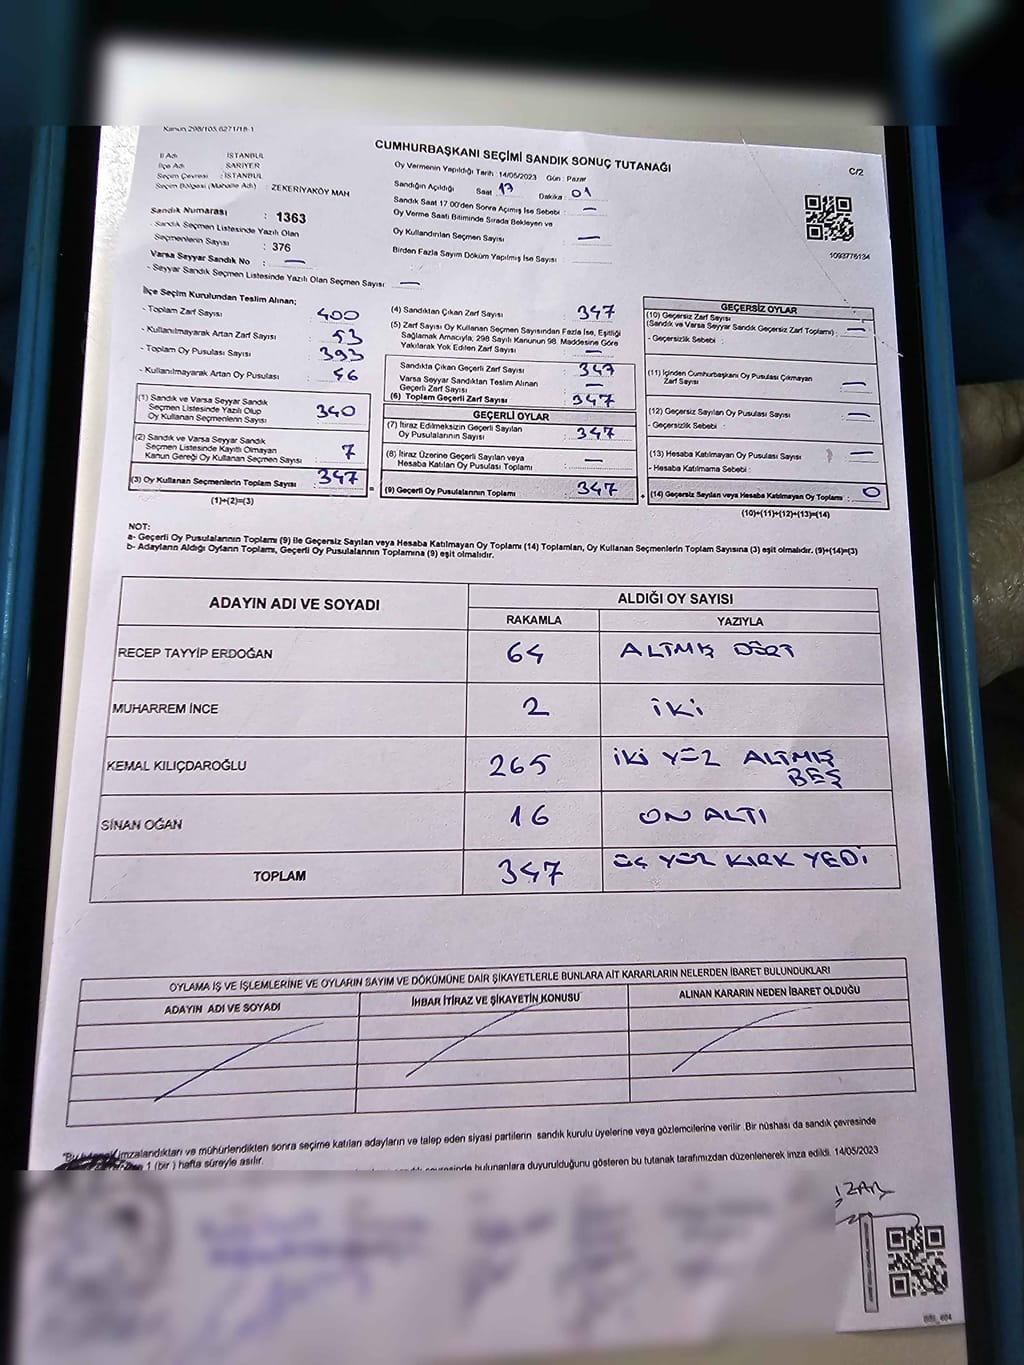 Kanun 298/105,6271/18-1
CUMHURBAŞKANI SEÇİMİ SANDIK SONUÇ TUTANAĞI
C/2
İl Adı : İSTANBUL
İlçe Adı : SARIYER
Seçim Çevresi : İSTANBUL
Seçim Bölgesi (Mahalle Adı) : ZEKERİYAKÖY MAH
Sandık Numarası : 1363
- Sandık Seçmen Listesinde Yazılı Olan
Seçmenlerin Sayısı : 376
Varsa Seyyar Sandık No : —
- Seyyar Sandık Seçmen Listesinde Yazılı Olan Seçmen Sayısı : —
Oy Vermenin Yapıldığı Tarih : 14/05/2023 Gün : Pazar
Sandığın Açıldığı Saat 17 Dakika : 01
Sandık Saat 17.00'den Sonra Açımış İse Sebebi : —
Oy Verme Saati Bitiminde Sırada Bekleyen ve
Oy Kullandırılan Seçmen Sayısı : —
Birden Fazla Sayım Döküm Yapılmış İse Sayısı :
1093776134
İlçe Seçim Kurulundan Teslim Alınan;
- Toplam Zarf Sayısı : 400
- Kullanılmayarak Artan Zarf Sayısı : 53
- Toplam Oy Pusulası Sayısı : 393
- Kullanılmayarak Artan Oy Pusulası : 46
(1) Sandık ve Varsa Seyyar Sandık
Seçmen Listesinde Yazılı Olup
Oy Kullanan Seçmenlerin Sayısı : 340
(2) Sandık ve Varsa Seyyar Sandık
Seçmen Listesinde Kayıtlı Olmayan
Kanun Gereği Oy Kullanan Seçmen Sayısı : 7
(3) Oy Kullanan Seçmenlerin Toplam Sayısı : 347
(1)+(2)=(3)
(4) Sandıktan Çıkan Zarf Sayısı : 347
(5) Zarf Sayısı Oy Kullanan Seçmen Sayısından Fazla İse, Eşitliği
Sağlamak Amacıyla, 298 Sayılı Kanunun 98. Maddesine Göre
Yakılarak Yok Edilen Zarf Sayısı : —
Sandıkta Çıkan Geçerli Zarf Sayısı : 347
Varsa Seyyar Sandıktan Teslim Alınan
Geçerli Zarf Sayısı : —
(6) Toplam Geçerli Zarf Sayısı : 347
GEÇERLİ OYLAR
(7) İtiraz Edilmeksizin Geçerli Sayılan
Oy Pusulalarının Sayısı : 347
(8) İtiraz Üzerine Geçerli Sayılan veya
Hesaba Katılan Oy Pusulası Toplamı : —
(9) Geçerli Oy Pusulalarının Toplamı : 347
GEÇERSİZ OYLAR
(10) Geçersiz Zarf Sayısı
(Sandık ve Varsa Seyyar Sandık Geçersiz Zarf Toplamı) : —
- Geçersizlik Sebebi :
(11) İçinden Cumhurbaşkanı Oy Pusulası Çıkmayan
Zarf Sayısı : —
(12) Geçersiz Sayılan Oy Pusulası Sayısı : —
- Geçersizlik Sebebi :
(13) Hesaba Katılmayan Oy Pusulası Sayısı : —
- Hesaba Katılmama Sebebi :
(14) Geçersiz Sayılan veya Hesaba Katılmayan Oy Toplamı : 0
(10)+(11)+(12)+(13)=(14)
NOT:
a- Geçerli Oy Pusulalarının Toplamı (9) ile Geçersiz Sayılan veya Hesaba Katılmayan Oy Toplamı (14) Toplamları, Oy Kullanan Seçmenlerin Toplam Sayısına (3) eşit olmalıdır. (9)+(14)=(3)
b- Adayların Aldığı Oyların Toplamı, Geçerli Oy Pusulalarının Toplamına (9) eşit olmalıdır.
ADAYIN ADI VE SOYADI ALDIĞI OY SAYISI
RAKAMLA YAZIYLA
RECEP TAYYİP ERDOĞAN 64 ALTMIŞ DÖRT
MUHARREM İNCE 2 İKİ
KEMAL KILIÇDAROĞLU 265 İKİ YÜZ ALTMIŞ
BEŞ
SİNAN OĞAN 16 ON ALTI
TOPLAM 347 ÜÇ YÜZ KIRK YEDİ
OYLAMA İŞ VE İŞLEMLERİNE VE OYLARIN SAYIM VE DÖKÜMÜNE DAİR ŞİKAYETLERLE BUNLARA AİT KARARLARIN NELERDEN İBARET BULUNDUKLARI
ADAYIN ADI VE SOYADI İHBAR İTİRAZ VE ŞİKAYETİN KONUSU ALINAN KARARIN NEDEN İBARET OLDUĞU
imzalandıktan ve mühürlendikten sonra seçime katılan adayların ve talep eden siyasi partilerin sandık kurulu üyelerine veya gözlemcilerine verilir. Bir nüshası da sandık çevresinde
1 (bir) hafta süreyle asılır. bulunanlara duyurulduğunu gösteren bu tutanak tarafımızdan düzenlenerek imza edildi. 14/05/2023